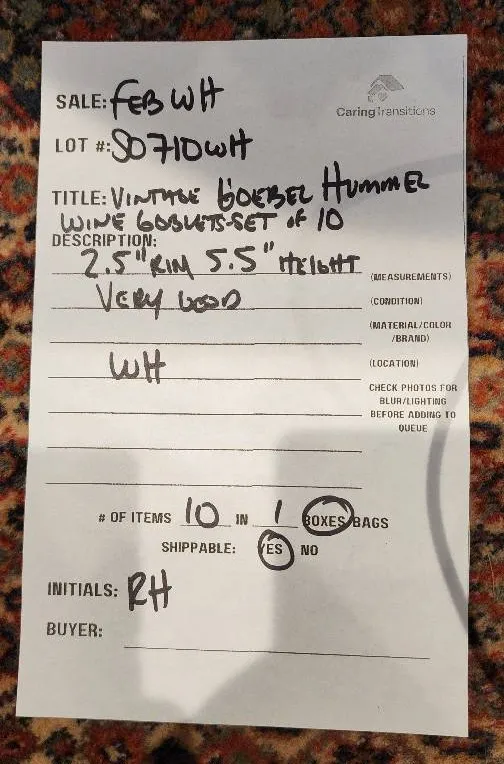 CaringTransitions
SALE: FEB WH
LOT #: SO710WH
TITLE: VINTAGE GOEBEL HUMMEL
WINE GOBLETS-SET OF 10
DESCRIPTION:
2.5" RIM 5.5" HEIGHT
(MEASUREMENTS)
VERY GOOD
(CONDITION)
(MATERIAL/COLOR
/BRAND)
WH
(LOCATION)
CHECK PHOTOS FOR
BLUR/LIGHTING
BEFORE ADDING TO
QUEUE
# OF ITEMS 10 IN 1 BOXES/BAGS
SHIPPABLE: YES NO
INITIALS: RH
BUYER: